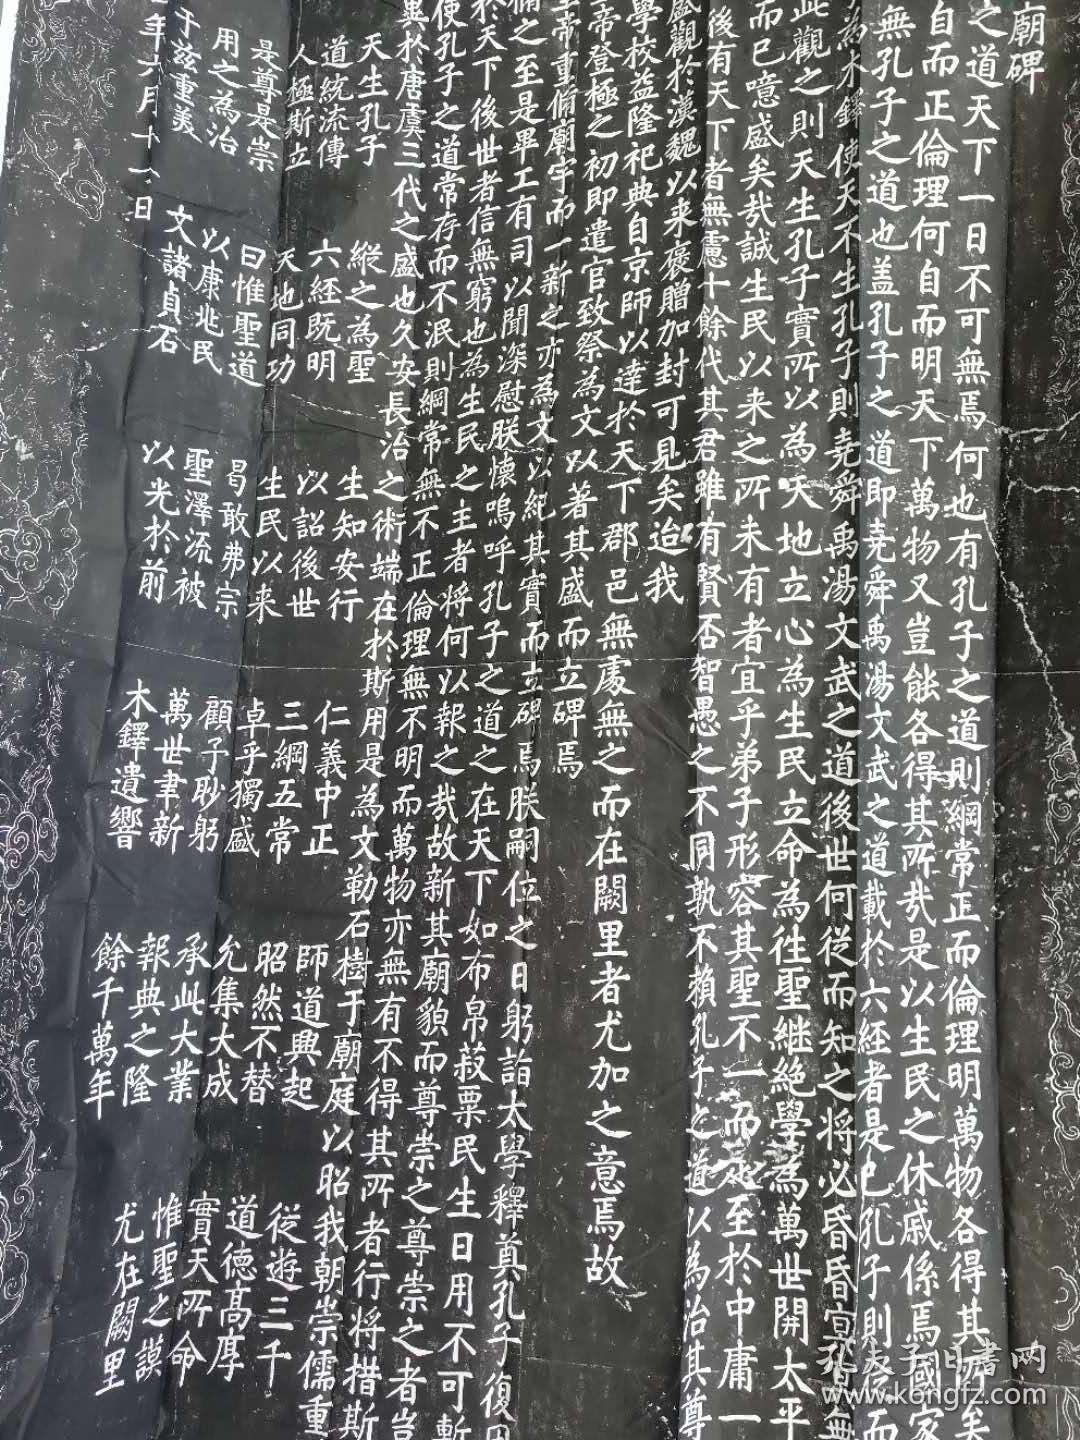 廟碑
之道天下一日不可無焉何也有孔子之道則綱常正而倫理明萬物各得其所矣
自而正倫理何自而明天下萬物又豈能各得其所哉是以生民之休戚係焉國家
無孔子之道也蓋孔子之道即堯舜禹湯文武之道載於六經者是已孔子則從而
為木鐸使天不生孔子則堯舜禹湯文武之道後世何從而知之將必昏昏冥冥無
此觀之則天生孔子實所以為天地立心為生民立命為往聖繼絕學為萬世開太平
而已噫盛矣哉誠生民以来之所未有者宜乎弟子形容其聖不一而足至於中庸一
後有天下者無慮十餘代其君雖有賢否智愚之不同孰不賴孔子之道以為治其尊
盛觀於漢魏以来褒贈加封可見矣迨我
學校益隆祀典自京師以達於天下郡邑無處無之而在闕里者尤加之意焉故
帝登極之初即遣官致祭為文以著其盛而立碑焉
帝重脩廟宇而一新之亦為文以紀其實而立碑焉朕嗣位之日躬詣太學釋奠孔子復
備之至是畢工有司以聞深慰朕懷嗚呼孔子之道之在天下如布帛菽粟民生日用不可暫
於天下後世者信無窮也為生民之主者將何以報之哉故新其廟貌而尊崇之尊崇之者豈
使孔子之道常存而不泯則綱常無不正倫理無不明而萬物亦無有不得其所者行將措斯
異於唐虞三代之盛也久安長治之術端在於斯用是為文勒石樹于廟庭以昭我朝崇儒重
天生孔子 縱之為聖 生知安行 仁義中正 師道興起 從遊三千
道統流傳 六經既明 以詔後世 三綱五常 昭然不替 道德高厚
人極斯立 天地同功 生民以来 卓乎獨盛 允集大成 實天所命
是尊是崇 曰惟聖道 曷敢弗宗 顧予眇躬 承此大業 惟聖之謨
用之為治 以康兆民 聖澤流被 萬世聿新 報典之隆 尤在闕里
于兹重美 文諸貞石 以光於前 木鐸遺響 餘千萬年
年六月十一日
孔夫子旧書网
www.kongfz.com